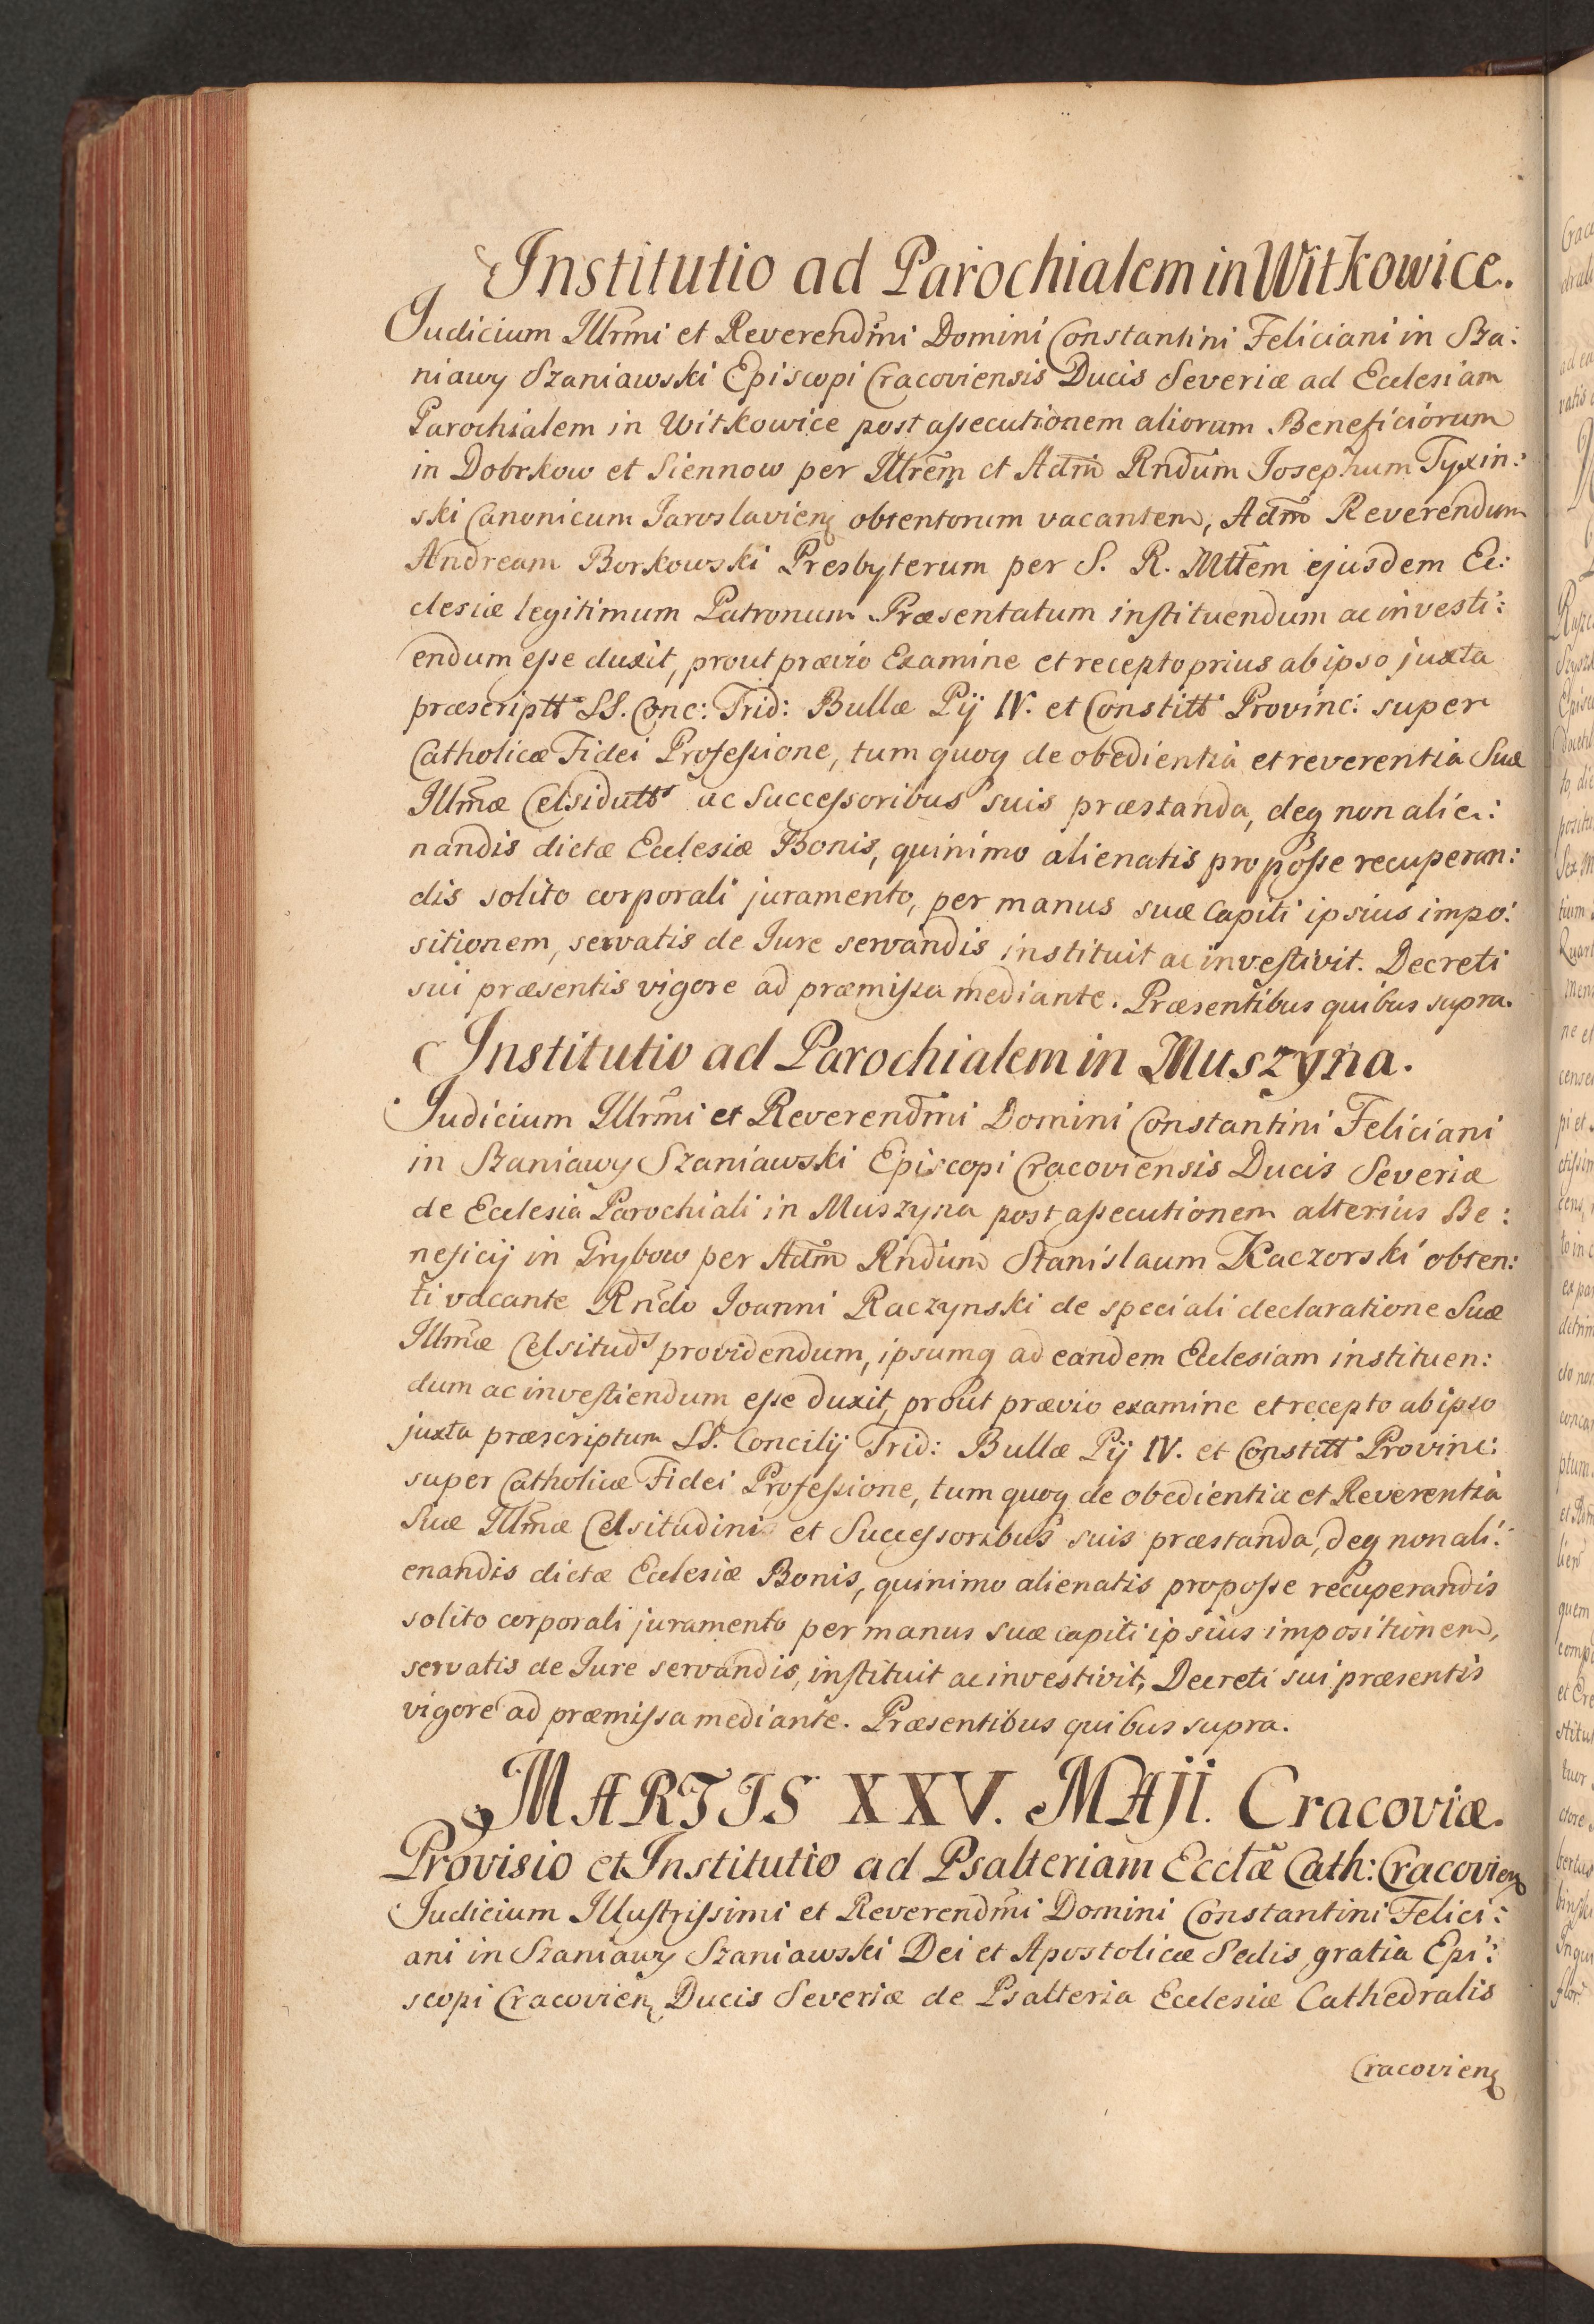 Institutio ad Parochialem in Witkowice.
Judicium Illrm̃i et Reverendm̃i Domini Constantini Feliciani in Sza:
niawy Szaniawski Episcopi Cracoviensis Ducis Severiæ ad Ecclesiam
Parochialem in Witkowice post assecutionem aliorum Beneficiorum
in Dobrkow et Siennow per Illrem̃ et Adm̃ Rndũm Josephum Tyxin:
ski Canonicum Jaroslavienq obtentorum vacantem, Adm̃ Reverendum
Andream Borkowski Presbyterum per S. R. Mttẽm ejusdem Ec:
clesiæ legitimum Patronum Præsentatum instituendum ac investi:
endum esse duxit, prout prævio Examine et recepto prius ab ipso juxta
præscriptt SS. Conc: Trid: Bullæ Pij IV. et Constitt Provinc: super
Catholicæ Fidei Professione, tum quoq de obedientia et reverentia Suæ
Illm̃æ Celsidutts ac Successoribus suis præstanda, deq non alie:
nandis dictæ Ecclesiæ Bonis, quinimo alienatis pro posse recuperan:
dis solito corporali juramento, per manus suæ Capiti ipsius impo:
sitionem, servatis de Jure servandis instituit ac investivit. Decreti
sui præsentis vigore ad præmissa mediante. Præsentibus quibus supra.
Institutio ad Parochialem in Muszyna.
Judicium Illrm̃i et Reverendm̃i Domini Constantini Feliciani
in Szaniawy Szaniawski Episcopi Cracoviensis Ducis Severiæ
de Ecclesia Parochiali in Muszyna post assecutionem alterius Be:
neficij in Grybow per Adm̃ Rndum Stanislaum Kaczorski obten:
ti vacante Rndo Joanni Raczynski de speciali declaratione Suæ
Illm̃æ Celsituds providendum, ipsumq ad eandem Ecclesiam instituen:
dum ac investiendum esse duxit, prout prævio examine et recepto ab ipso
juxta præscriptum SS. Concilij Trid: Bullæ Pij IV. et Constitt Provinc:
super Catholicæ Fidei Professione, tum quoq de obedientia et Reverentia
Suæ Illm̃æ Celsitudinis et Successoribus suis præstanda, deq non ali:
enandis dictæ Ecclesiæ Bonis, quinimo alienatis pro posse recuperandis
solito corporali juramento per manus suæ capiti ipsius impositionem,
servatis de Jure servandis, instituit ac investivit, Decreti sui præsentis
vigore ad præmissa mediante. Præsentibus quibus supra.
MARTIS XXV. MAJI. Cracoviæ.
Provisio et Institutio ad Psalteriam Ecclæ̃ Cath: Cracovienq
Judicium Illustrissimi et Reverendm̃i Domini Constantini Felici:
ani in Szaniawy Szaniawski Dei et Apostolicæ Sedis gratia Epi:
scopi Cracovienq Ducis Severiæ de Psalteria Ecclesiæ Cathedralis
Cracovienq